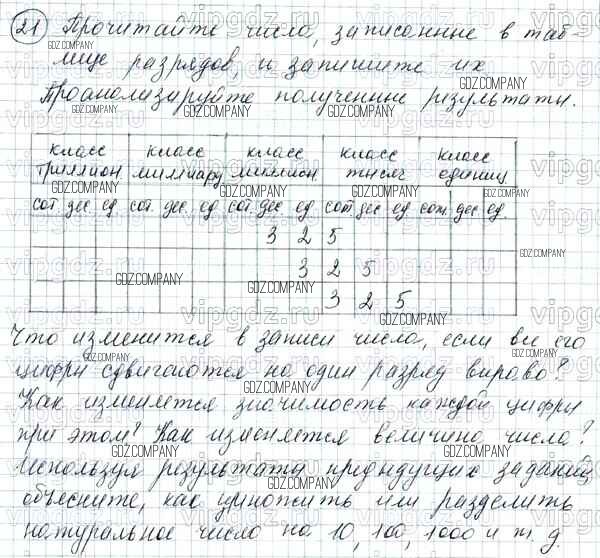 21 Прочитайте числа, записанные в таб-
лице разрядов, и запишите их
Проанализируйте полученные результаты.
класс класс класс класс класс
триллион миллиард миллион тысяч единиц
сот дес ед сот дес ед сот дес ед сот дес ед сот дес ед
3 2 5
3 2 5
3 2 5
Что изменится в записи числа, если все его
цифры сдвигаются на один разряд вправо?
Как изменяется значимость каждой цифры
при этом? Как изменяется величина числа?
Используя результаты предыдущих заданий
объясните, как умножить или разделить
натуральное число на 10, 100, 1000 и т. д.
vipgdz.ru
GDZ.COMPANY